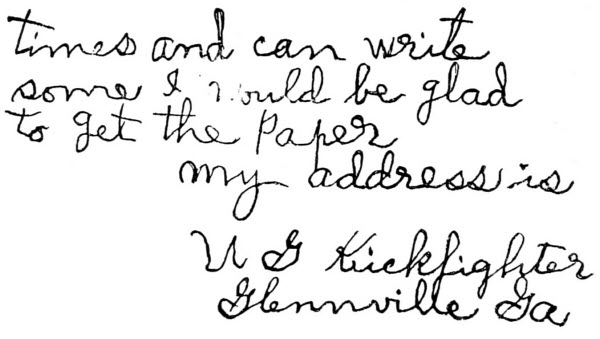 times and can write
some I would be glad
to get the Paper
my address is
U G
Glennville Ga